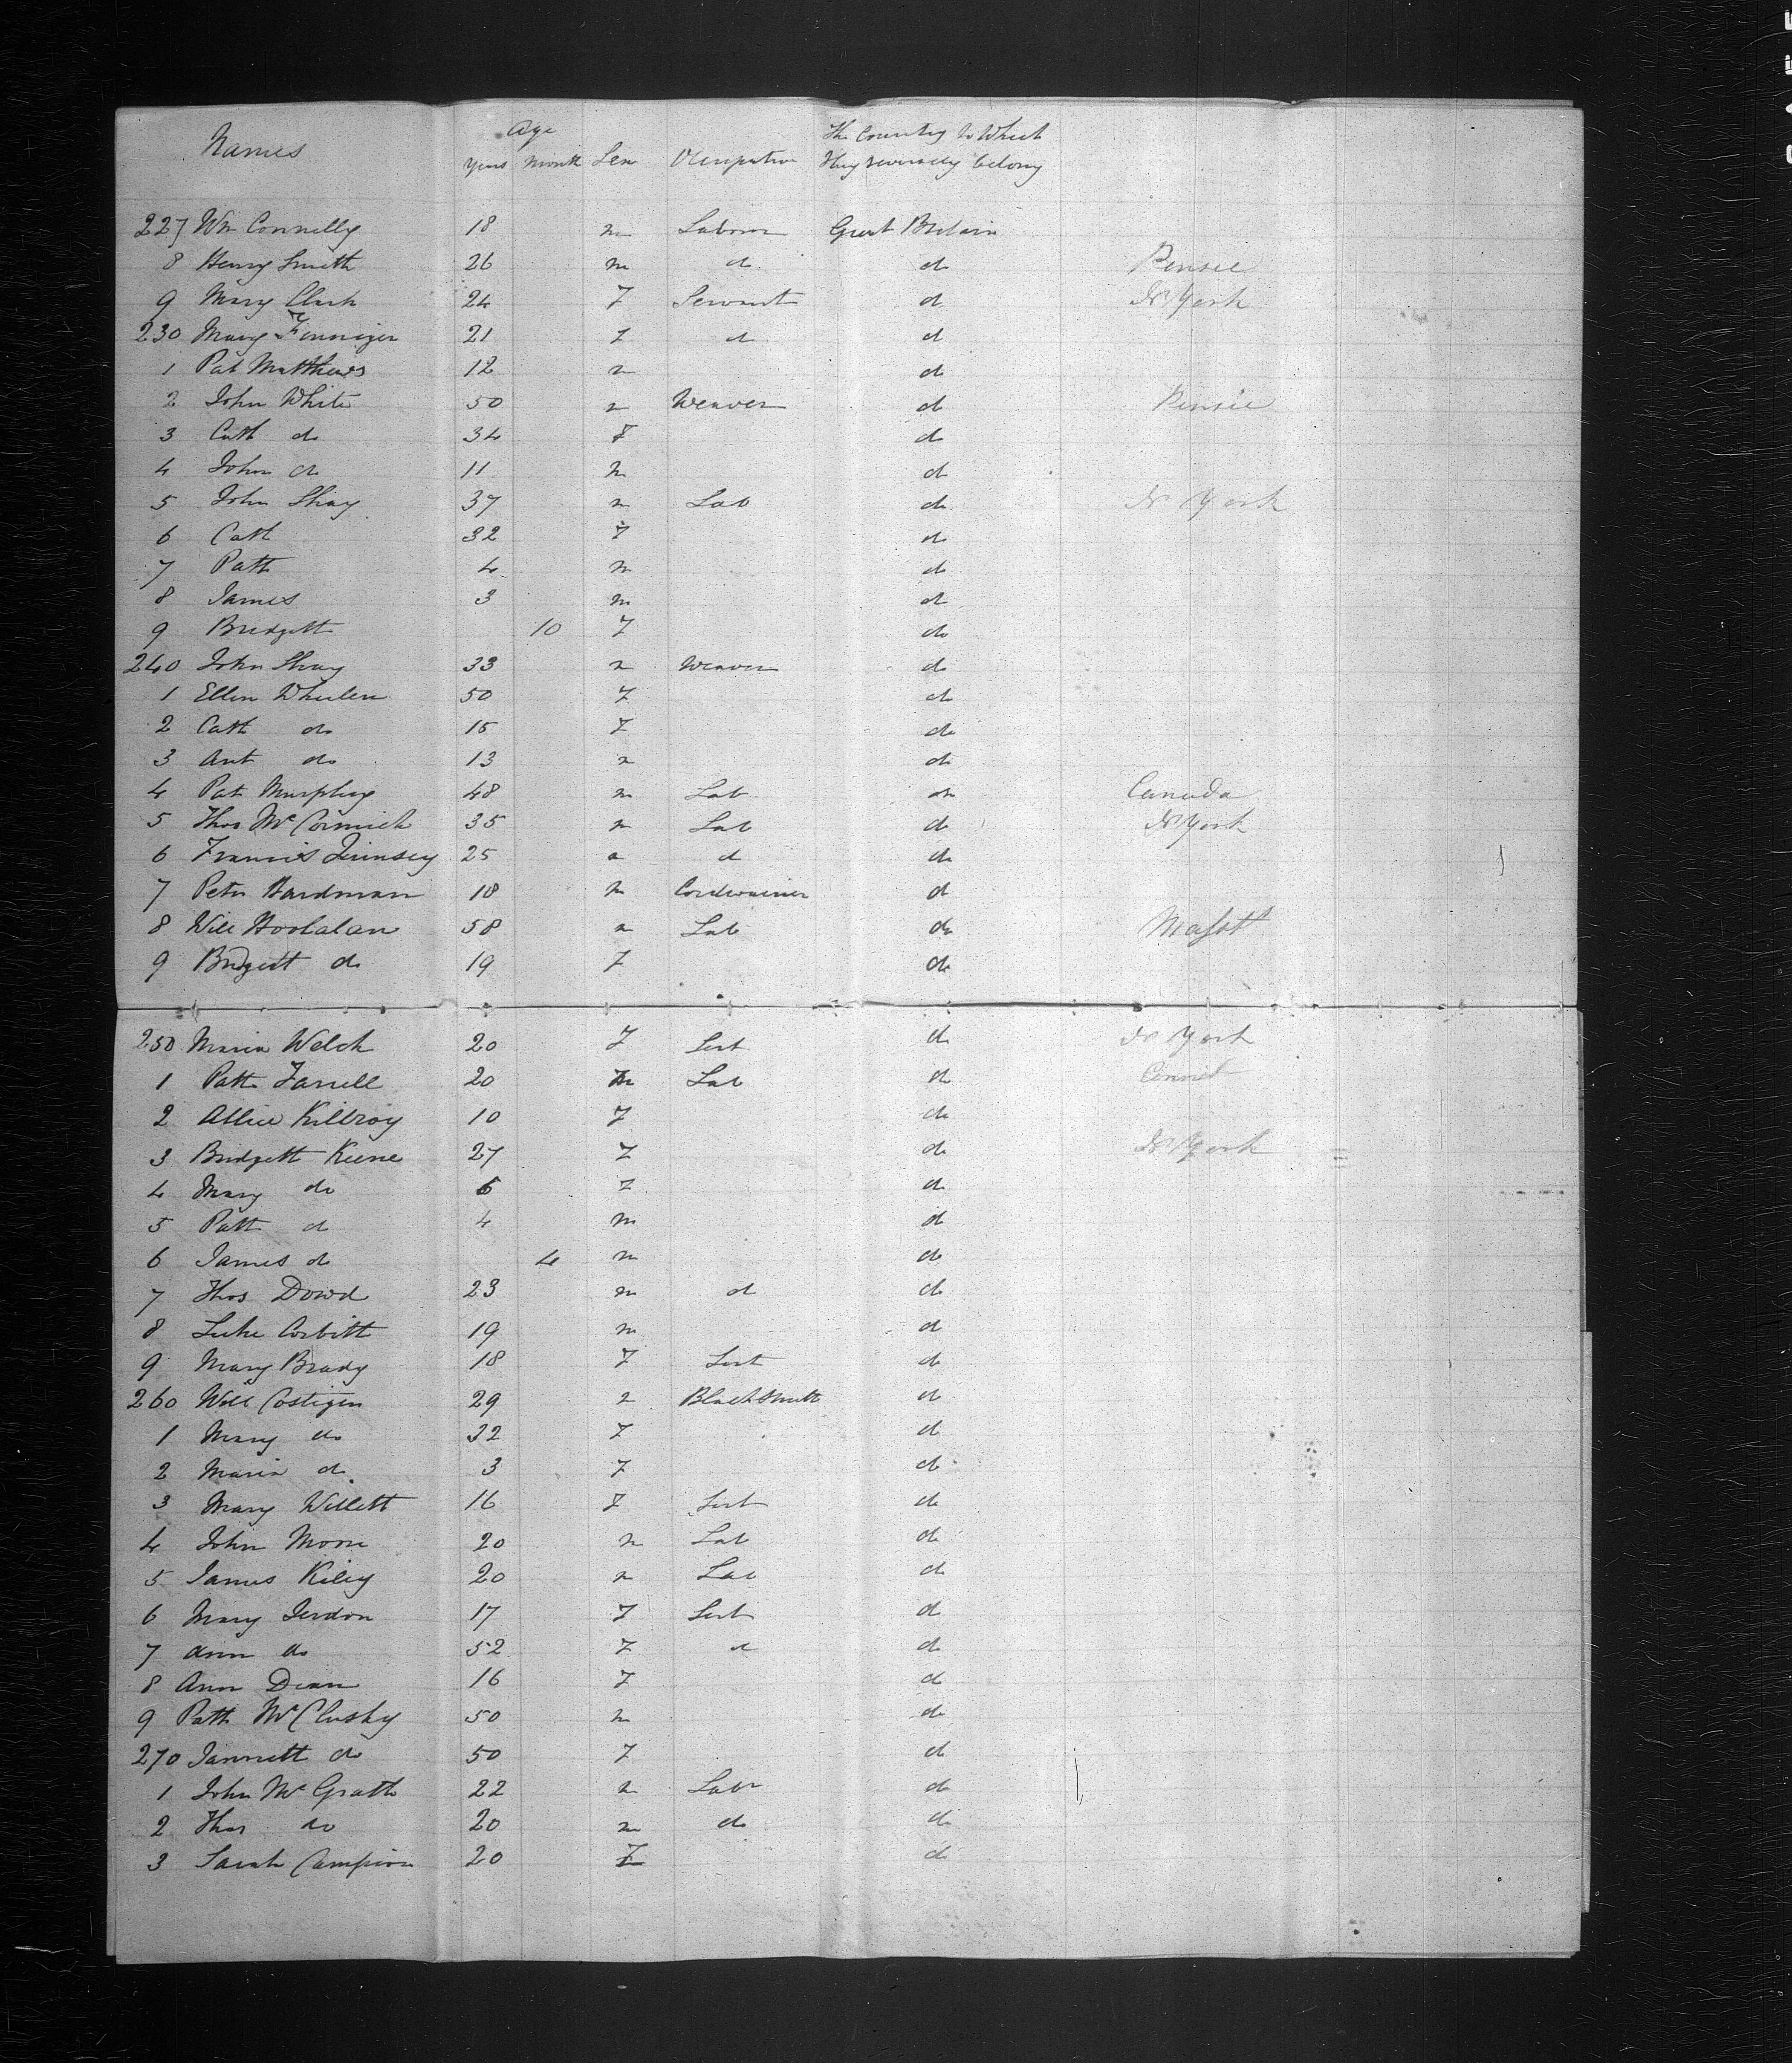 Names Age The Country to Which
Years Month Sex Occupation they severally belong
227 Wm Connelly 18 m Labourer Great Britain
8 Henry Smith 26 m d d Pensie
9 Mary Clark 24 F Servant d N York
230 Mary Finnigen 21 F d d
1 Pat Matthews 12 m d
2 John White 50 m Weaver d Pensie
3 Cath do 34 F d
4 John do 11 m d
5 John Shay 37 m Lab d N York
6 Cath 32 F d
7 Patk 4 m d
8 James 3 m d
9 Bridgett 10 F do
240 John Shay 33 m Weaver d
1 Ellen Wheelen 50 F d
2 Cath do 15 F do
3 Ant do 13 m do
4 Pat Murphy 48 m Lab do Canada
5 Thos McCormick 35 m Lab d N York
6 Francis 25 m d do
7 Peter Hardman 18 m Cordwainer d
8 Will Hoolalan 58 m Lab do Masst
9 Bridgett do 19 F do
250 Maria Welch 20 F Sert d N York
1 Patk Farrell 20 m Lab d Connet
2 Allice Killroy 10 F do
3 Bridgett Keene 27 F do N York
4 Mary do 6 F d
5 Patk d 4 m d
6 James d 4 m do
7 Thos Dowd 23 m d do
8 Luke Corbitt 19 m d
9 Mary Brady 18 F Sert d
260 Will Costigen 29 m Blacksmith d
1 Mary do 32 F d
2 Maria d 3 F d
3 Mary Willett 16 F Sert do
4 John Moore 20 m Lab do
5 James Kiley 20 m Lab d
6 Mary Jerdon 17 F Sert d
7 Ann do 52 F d d
8 Ann Dean 16 F d
9 Patk McClusky 50 m do
270 Jannett do 50 F d
1 John McGrath 22 m Labr d
2 Thos do 20 m do d
3 Sarah Campion 20 F d